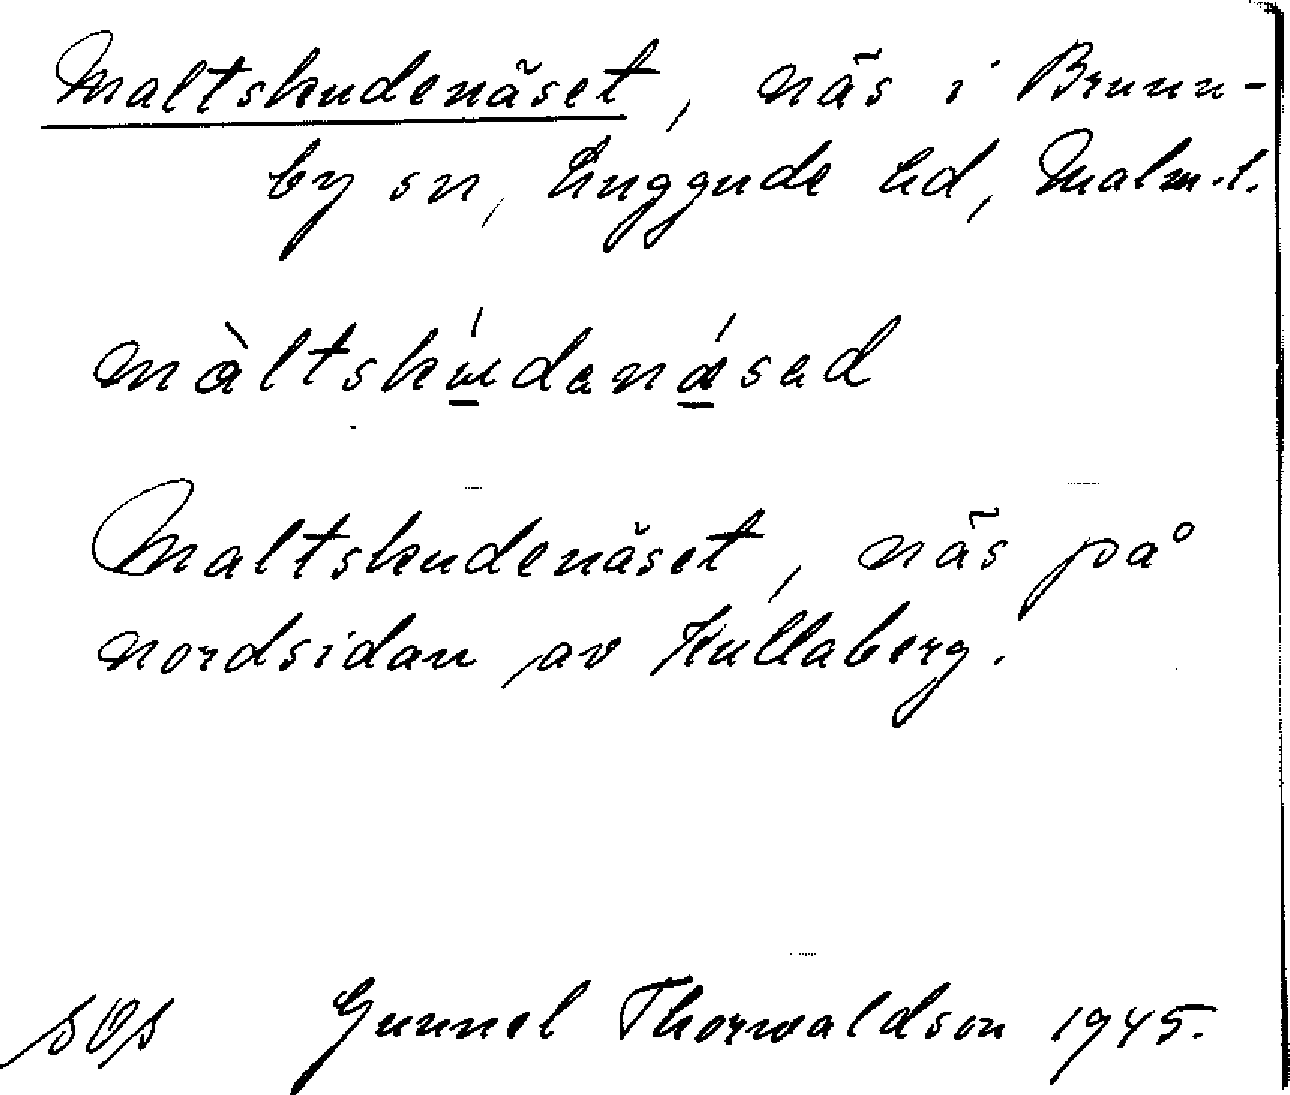 Maltskudenäset, näs i Brunn-
by sn, Luggude hd, Malm.l.
màltskúdanǽsad
Maltskudenäset, näs på
nordsidan av Kullaberg.
SOS Gunnel Thorwaldson 1945.